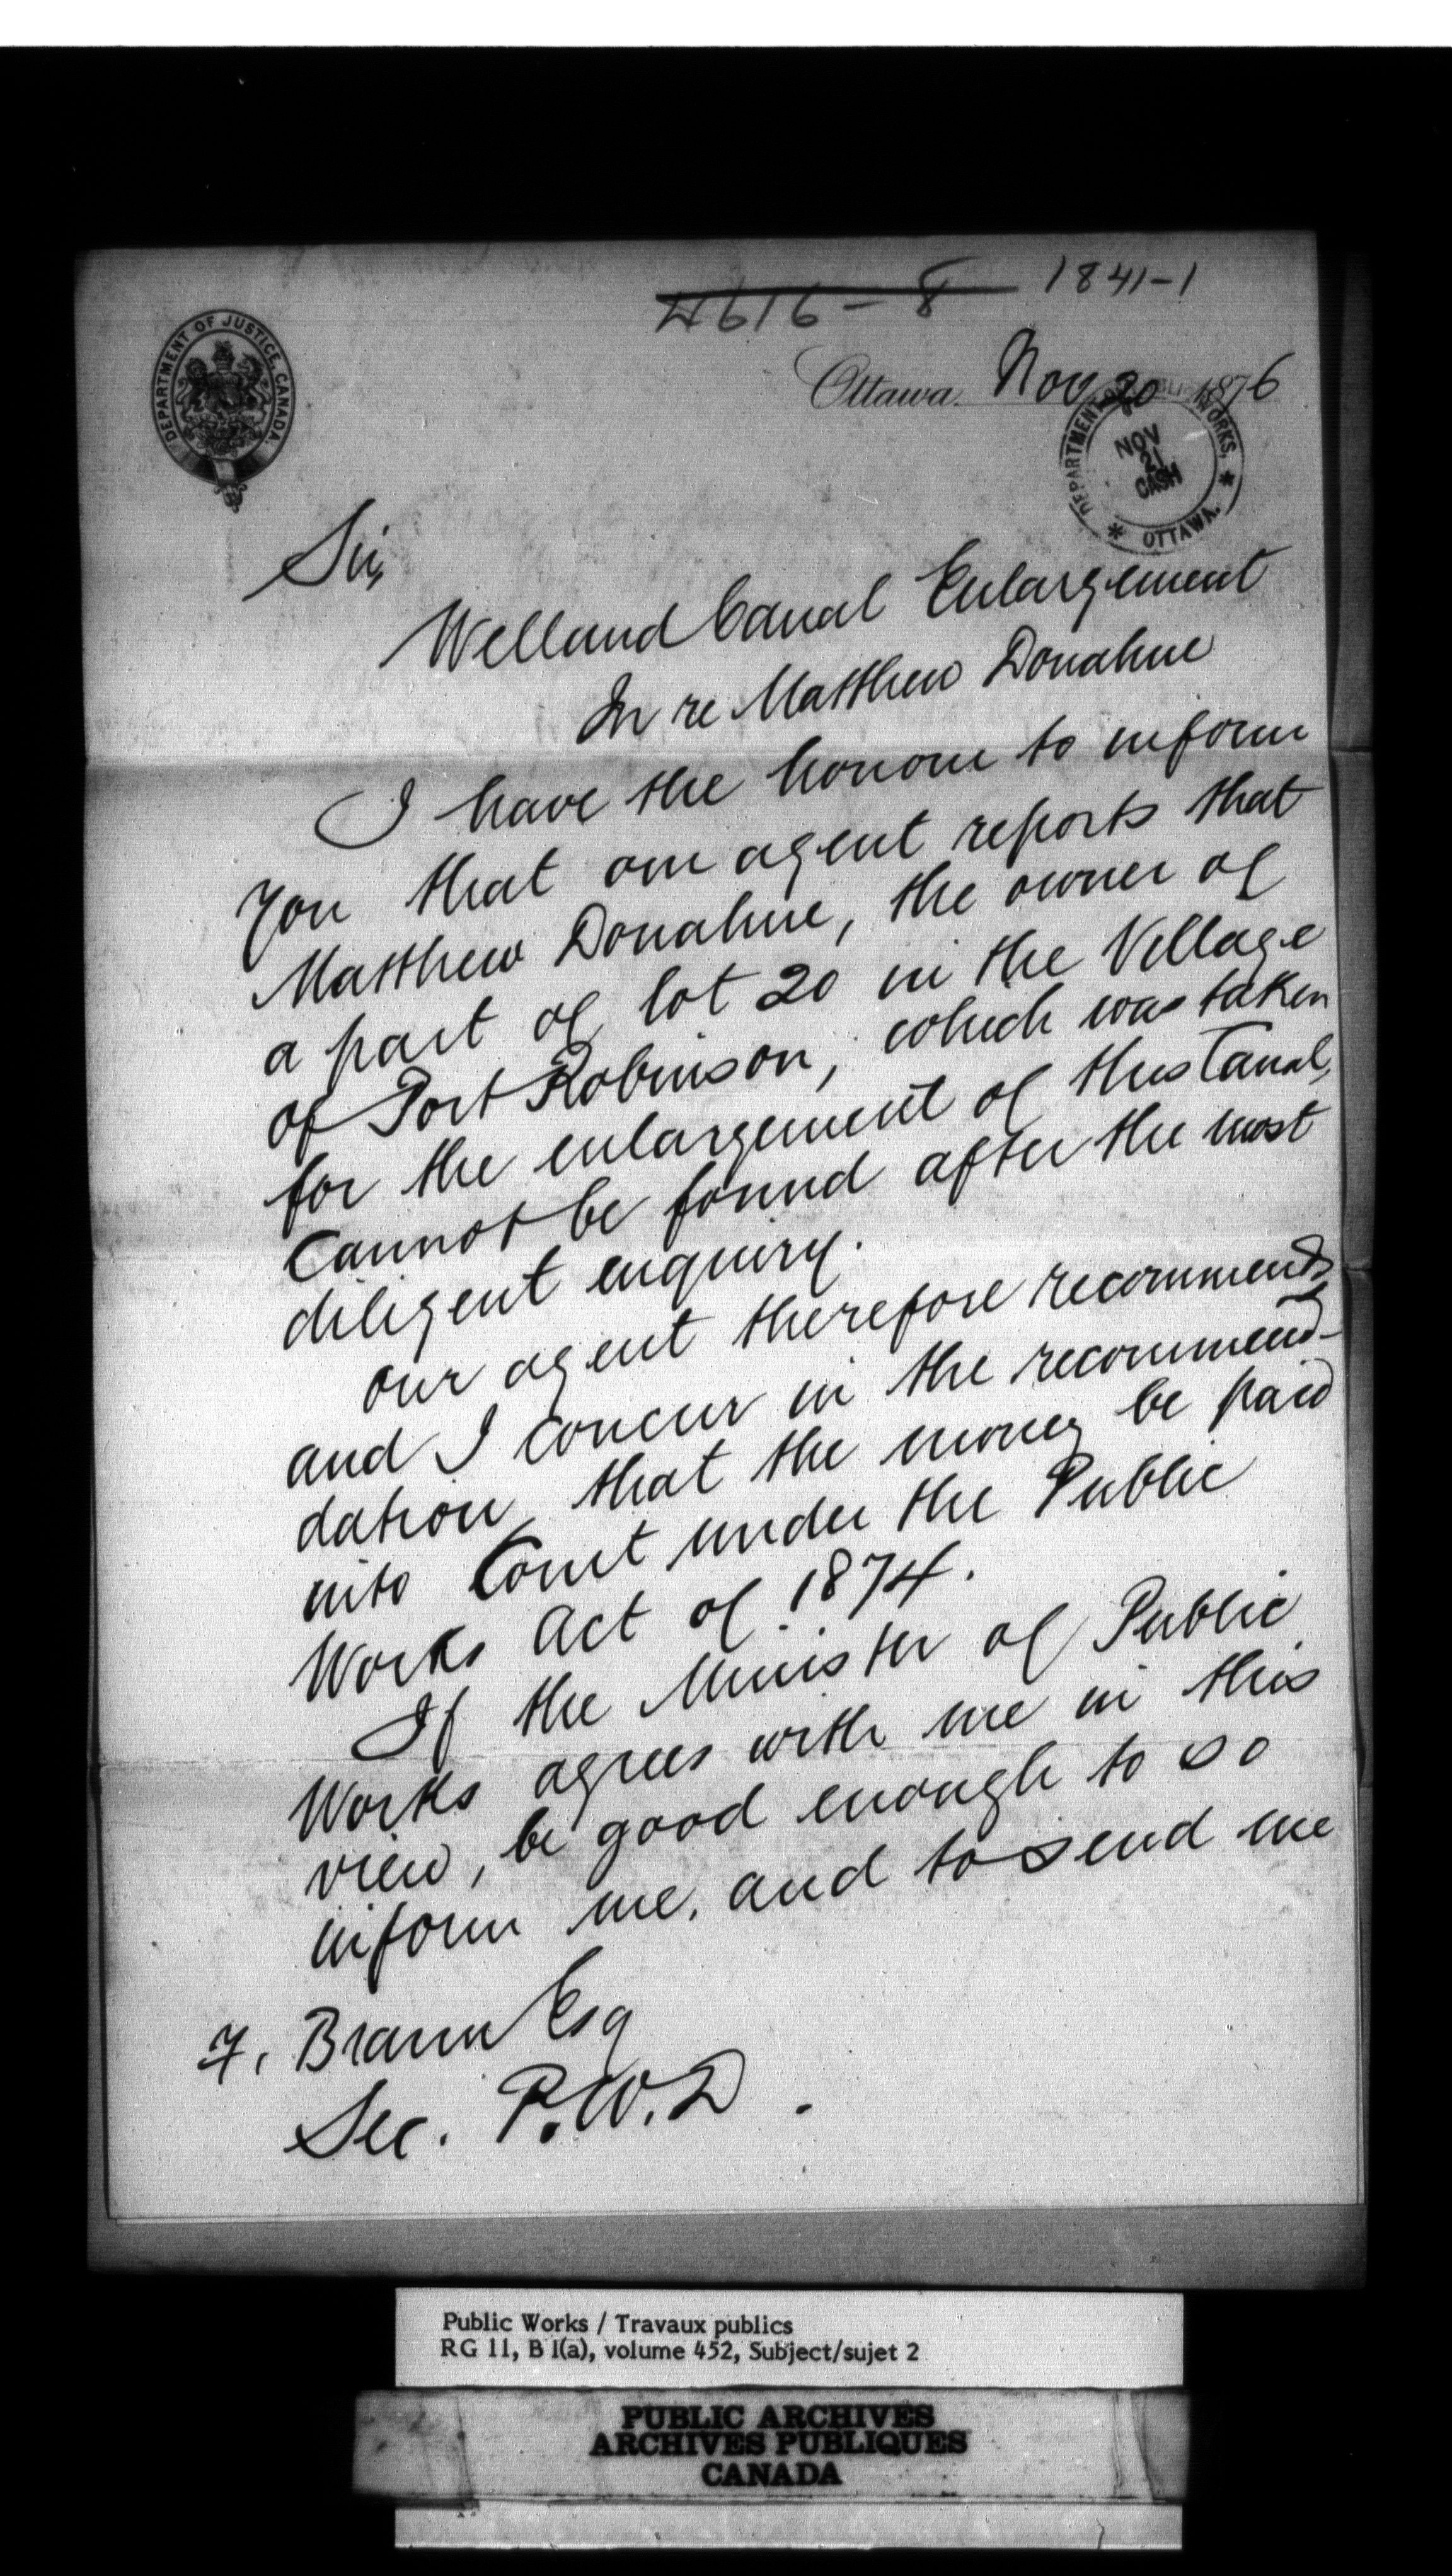 4616-8 1841-1
DEPARTMENT OF JUSTICE, CANADA.
Ottawa. Nov 20 1876
DEPARTMENT OF PUBLIC WORKS,
NOV
21
CASH
* OTTAWA. *
Sir,
Welland Canal Enlargement
In re Matthew Donahue
I have the honour to inform
you that our agent reports that
Matthew Donahue, the owner of
a part of lot 20 in the Village
of Port Robinson, which was taken
for the enlargement of this Canal,
Cannot be found after the most
diligent enquiry.
our agent therefore recommends
and I concur in the recommen-
dation that the money be paid
into Court under the Public
Works Act of 1874.
If the Minister of Public
Works agrees with me in this
view, be good enough to so
inform me, and to send me
F. Braun Esq
Sec. P.W.D.
Public Works / Travaux publics
RG 11, B 1(a), volume 452, Subject/sujet 2
PUBLIC ARCHIVES
ARCHIVES PUBLIQUES
CANADA